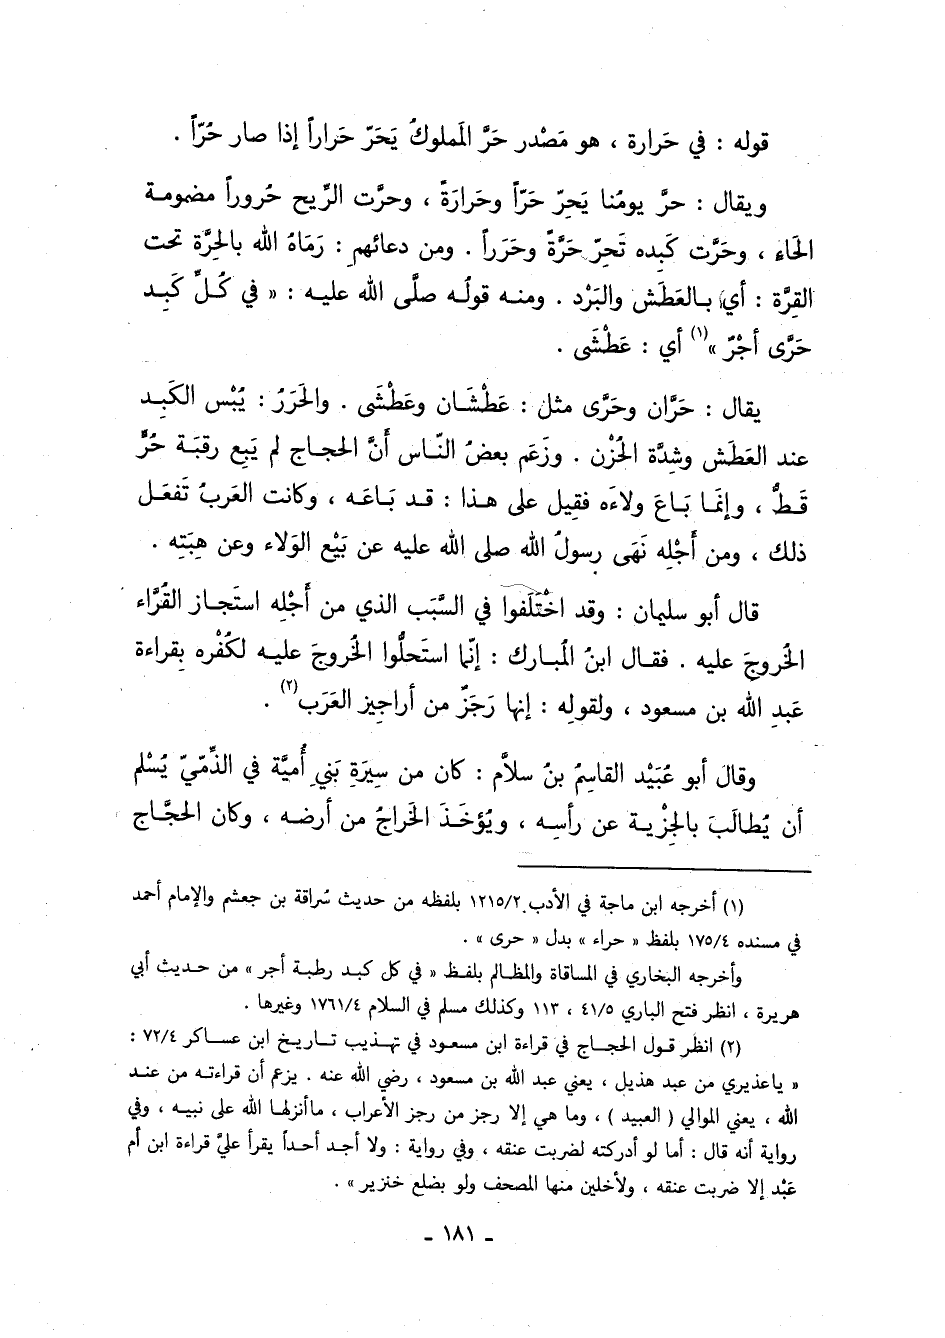 قوله : في حَرارة ، هو مَصْدر حَرَّ المَملوكُ يَحَرّ حَراراً إذا صار حُرّاً .
ويقال : حرَّ يومُنا يَحِرّ حَرّاً وحَرارَةً ، وحرَّت الرِّيح حُروراً مضمومة
الحَاء ، وحَرَّت كَبِده تَحِرّ حَرَّةً وحَرَراً . ومن دعائهم : رَمَاهُ الله بالحِرَّة تحت
القِرَّة : أي بالعَطَش والبَرْد . ومنه قولُه صلَّى الله عليه : « في كُلِّ كَبِد
حَرَّى أجْرٌ »(١) أي : عَطْشَى .
يقال : حَرَّان وحَرَّى مثل : عَطْشَان وعَطْشَى . والحَرَرُ : يُبْس الكَبِد
عند العَطَش وشِدَّة الحُزْن . وزَعَم بعضُ النّاس أَنَّ الحجاج لم يَبِع رقبَة حُرٍّ
قَطُّ ، وإنَّما بَاعَ ولاءَه فقِيل على هذا : قد بَاعَه ، وكانت العَربُ تَفعَل
ذلك ، ومن أَجْلِه نَهَى رسولُ الله صلى الله عليه عن بَيْع الوَلاء وعن هِبَتِه .
قال أبو سليمان : وقد اخْتَلَفوا في السَّبَب الذي من أَجْلِه استَجاز القُرَّاء
الخُروجَ عليه . فقال ابنُ المُبارك : إنّما استَحلُّوا الخُروجَ عليه لكُفْره بقراءة
عَبدِ الله بن مسعود ، ولقولِه : إنها رَجَزٌ من أراجيز العَرَب(٢) .
وقال أبو عُبَيْد القاسِمُ بنُ سلاَّم : كان من سِيرَةِ بَنِي أُميَّة في الذِّمّيّ يُسْلم
أن يُطالَبَ بالجِزْية عن رأسِه ، ويُؤخَذَ الخَراجُ من أرضه ، وكان الحجَّاج
(١) أخرجه ابن ماجة في الأدب ١٢١٥/٢ بلفظه من حديث سُراقة بن جعشم والإمام أحمد
في مسنده ١٧٥/٤ بلفظ « حراء » بدل « حرى » .
وأخرجه البخاري في المساقاة والمظالم بلفظ « في كل كبد رطبة أجر » من حديث أبي
هريرة ، انظر فتح الباري ٤١/٥ ، ١١٣ وكذلك مسلم في السلام ١٧٦١/٤ وغيرها .
(٢) انظر قول الحجاج في قراءة ابن مسعود في تهذيب تاريخ ابن عساكر ٧٢/٤ :
« ياعذيري من عبد هذيل ، يعني عبد الله بن مسعود ، رضي الله عنه . يزعم أن قراءته من عند
الله ، يعني الموالي ( العبيد ) ، وما هي إلا رجز من رجز الأعراب ، ماأنزلها الله على نبيه ، وفي
رواية أنه قال : أما لو أدركته لضربت عنقه ، وفي رواية : ولا أجد أحداً يقرأ عليَّ قراءة ابن أم
عَبْد إلا ضربت عنقه ، ولأخلين منها المصحف ولو بضلع خنزير » .
- ١٨١ -